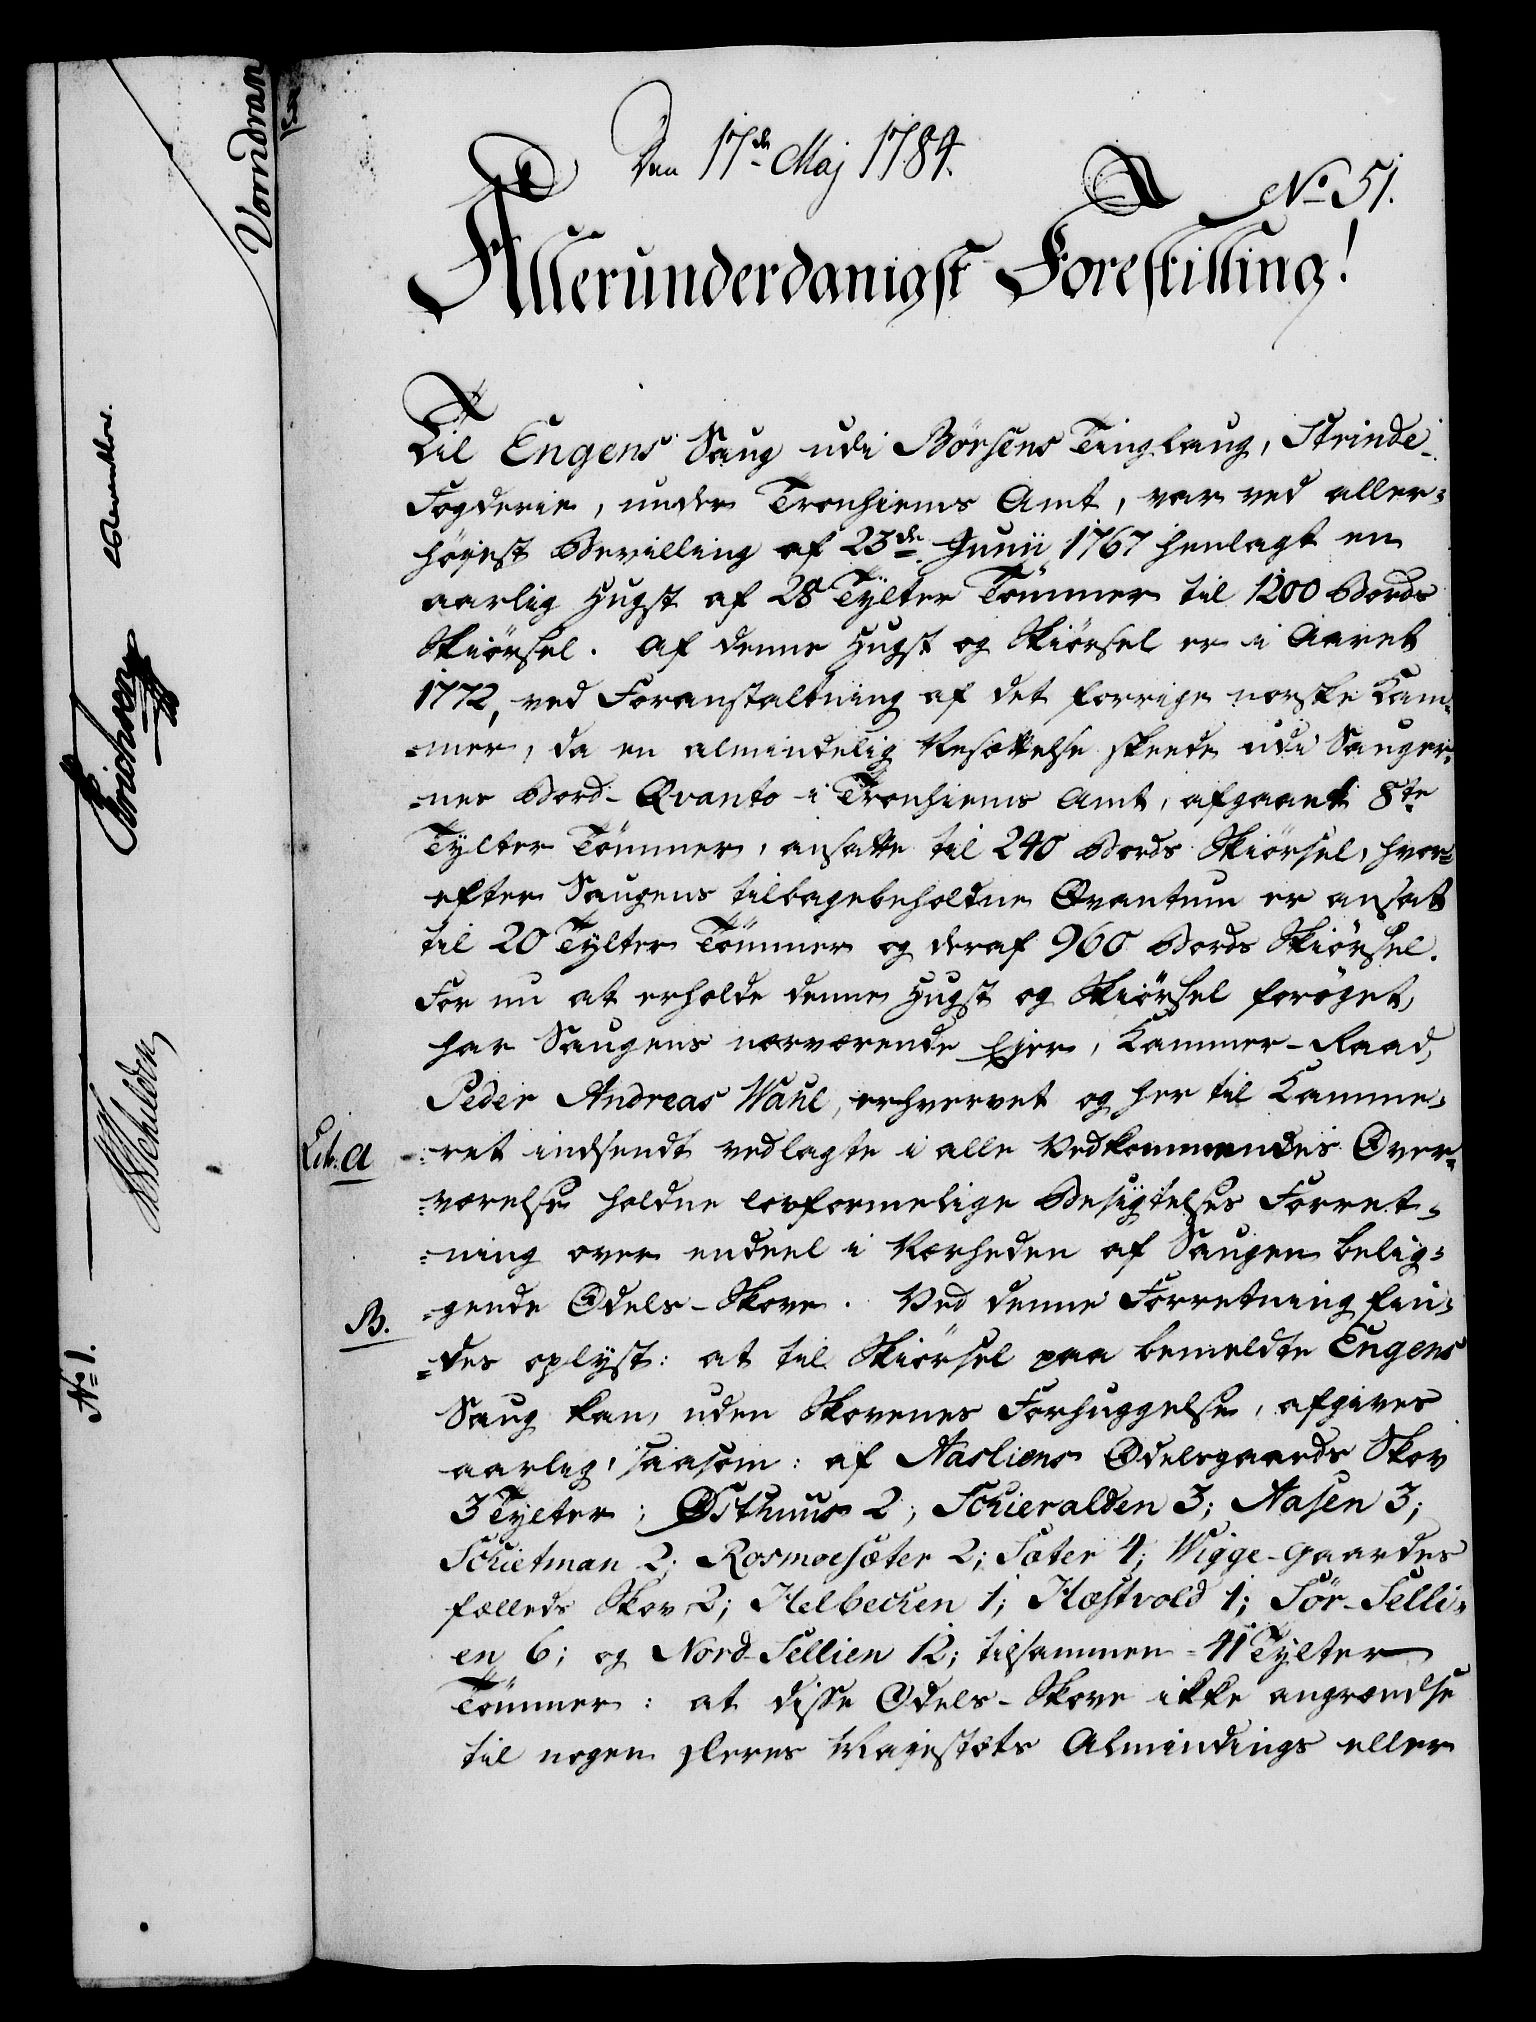 Den 17de Maj 1784.
No 51.
Allerunderdanigst Forestilling!
Til Engens Saug udi Børsens Tinglaug, Strinde
Fogderie, under Tronhiems Amt, var ved aller-
højest Bevilling af 23de Junii 1767 henlagt en
aarlig Hugst af 28 Tylter Tömmer til 1200 Bords
Skiörsel. Af denne Hugst og Skiörsel er i Aaret
1772, ved Foranstaltning af det forrige norske Kam-
-mer, da en almindelig Nesættelse skeede udi Sauger-
-nes Bord-Qvanto i Tronhiems Amt, afgaaet 8te
Tylter Tömmer, ansatte til 240 Bords Skiörsel, hvor-
efter Saugens tilbagebeholdne Qvantum er ansat
til 20 Tylter Tömmer og deraf 960 Bords Skiörsel.
For nu at erholde denne Hugst og Skiörsel forøget,
har Saugens nærværende Ejer, Kammer-Raad,
Peder Andreas Wahl, erhvervet og her til Kamme-
Litr. A
-ret indsendt vedlagte i alle Vedkommendes Over-
-værelse holdne lovformelige Besigtelses Forret-
-ning over endeel i Nærheden af Saugen belig-
B.
-gende Odels-Skove. Ved denne Forretning fin-
-des oplyst: at til Skiörsel paa bemeldte Engens
Saug kan, uden Skovenes Forhuggelse, afgives
aarlig, saasom: af Aasliens Odelsgaards Skov
3 Tylter; Østhuus 2; Schieralden 3; Aasen 3;
Schietman 2; Rosmoesæter 2; Sæter 4; Wigge-Gaardes
fælleds Skov 2; Helbechen 1; Hæstvold 1; Sör-Selli-
en 6; og Nord-Sellien 12; tilsammen 41 Tylter
Tömmer: at disse Odels-Skove ikke angrændse
til nogen Deres Majestæts Almindings eller
Vorndran
Erichsen
Schilden
No 1.